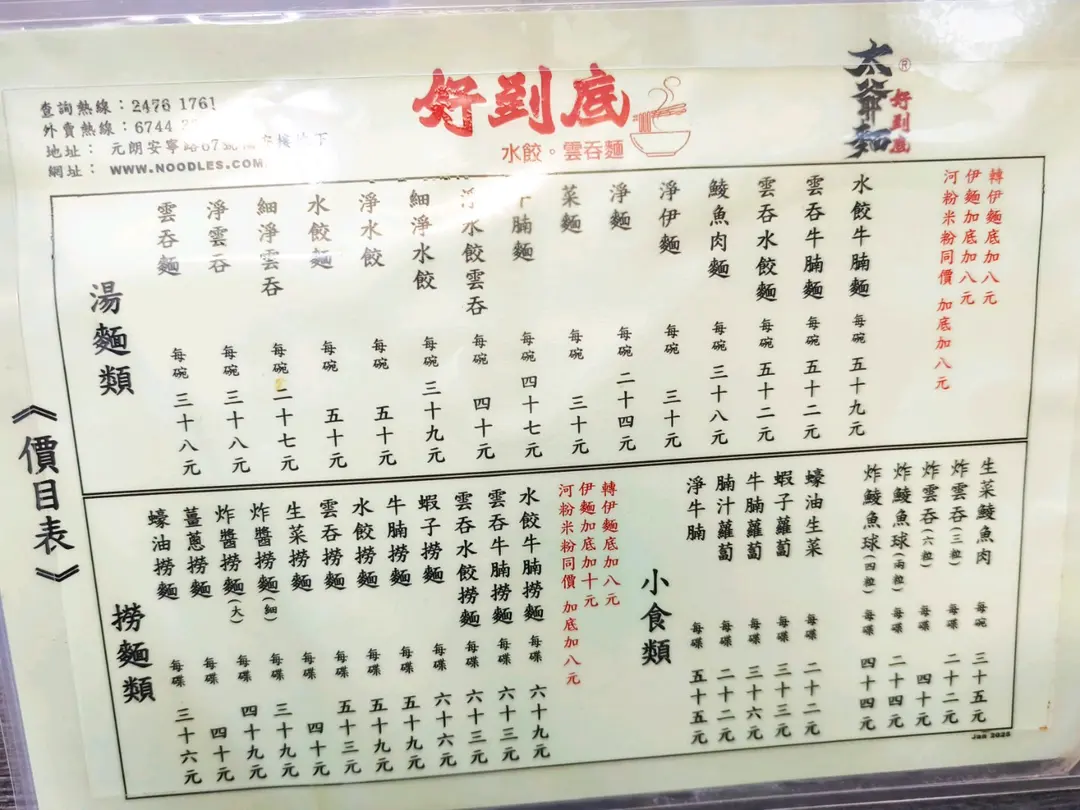 查詢熱線：2476 1761
外賣熱線：6744
地址： 元朗安寧路67號 樓地下
網址： WWW.NOODLES.COM
好到底
水餃。雲吞麵
太爺麵®
好到底
《價目表》
湯麵類
雲吞麵 每碗 三十八元
淨雲吞 每碗 三十八元
細淨雲吞 每碗 二十七元
水餃麵 每碗 五十元
淨水餃 每碗 五十元
細淨水餃 每碗 三十九元
淨水餃雲吞 每碗 四十元
牛腩麵 每碗 四十七元
菜麵 每碗 三十元
淨麵 每碗 二十四元
淨伊麵 每碗 三十元
鯪魚肉麵 每碗 三十八元
雲吞水餃麵 每碗 五十二元
雲吞牛腩麵 每碗 五十二元
水餃牛腩麵 每碗 五十九元
轉伊麵底加八元
伊麵加底加八元
河粉米粉同價 加底加八元
撈麵類
蠔油撈麵 每碟 三十六元
薑蔥撈麵 每碟 四十元
炸醬撈麵(大) 每碟 四十九元
炸醬撈麵(細) 每碟 三十九元
生菜撈麵 每碟 四十元
雲吞撈麵 每碟 五十三元
水餃撈麵 每碟 五十九元
牛腩撈麵 每碟 五十九元
蝦子撈麵 每碟 六十六元
雲吞水餃撈麵 每碟 六十三元
雲吞牛腩撈麵 每碟 六十三元
水餃牛腩撈麵 每碟 六十九元
轉伊麵底加八元
伊麵加底加十元
河粉米粉同價 加底加八元
小食類
淨牛腩 每碟 五十五元
腩汁蘿蔔 每碟 二十二元
牛腩蘿蔔 每碟 三十六元
蝦子蘿蔔 每碟 三十三元
蠔油生菜 每碟 二十二元
炸鯪魚球(四粒) 每碟 四十四元
炸鯪魚球(兩粒) 每碟 二十四元
炸雲吞(六粒) 每碟 四十元
炸雲吞(三粒) 每碟 二十二元
生菜鯪魚肉 每碗 三十五元